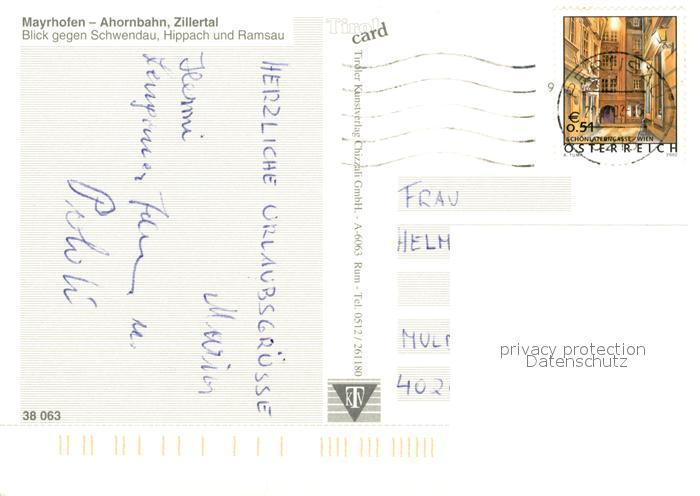 Mayrhofen – Ahornbahn, Zillertal
Blick gegen Schwendau, Hippach und Ramsau
Tirol
card
Tiroler Kunstverlag Chizzali GmbH. - A-6063 Rum - Tel. 0512/261180
KTV
38 063
HERZLICHE URLAUBSGRÜSSE
9
€
0.51
SCHÖNLATERNGASSE - WIEN
ÖSTERREICH
A. TUMA
2002
FRAU
HELM
MULD
402
privacy protection
Datenschutz